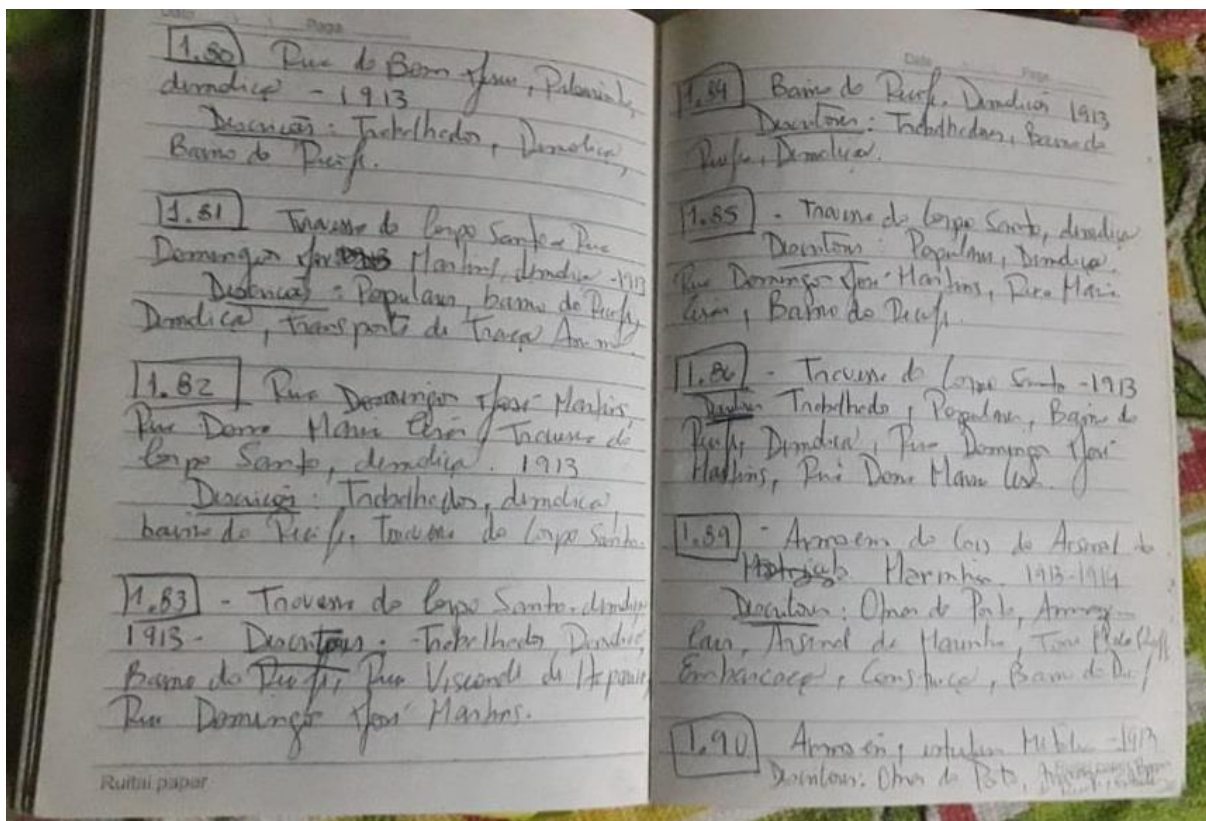 Data Paga
1.80 Rua do Bom Jesus,
demolição - 1913
Descrição: Trabalhador, Demolição,
Bairro do Recife.
1.81 Travessa do Corpo Santo e Rua
Domingos José Martins, demolição - 1913
Descrição: Populares, bairro do Recife,
Demolição, transporte de Tração Animal
1.82 Rua Domingos José Martins,
Rua Dona Maria César, Travessa do
Corpo Santo, demolição. 1913
Descrição: Trabalhador, demolição
bairro do Recife, Travessa do Corpo Santo.
1.83 - Travessa do Corpo Santo, demolição
1913 - Descritores: - Trabalhador, Demolição,
Bairro do Recife, Rua Visconde de Itaparica,
Rua Domingos José Martins.
Ruitai paper
Date Page
1.84 Bairro do Recife, Demolição 1913
Descritores: Trabalhadores, Bairro do
Recife, Demolição.
1.85 - Travessa do Corpo Santo, demolição
Descritores: Populares, Demolição.
Rua Domingos José Martins, Rua Maria
César, Bairro do Recife.
1.86 - Travessa do Corpo Santo - 1913
Trabalhado, Populares, Bairro do
Recife, Demolição, Rua Domingos José
Martins, Rua Dona Maria César.
1.89 - Armazém do Cais do Arsenal de
Marinha. 1913-1914
Descritores: Obras do Porto, Armazém
Cais, Arsenal de Marinha,
Embarcação, Construção, Bairro do Recife
1.90 Armazém, estrutura Metálica - 1913
Descritores: Obras do Porto,